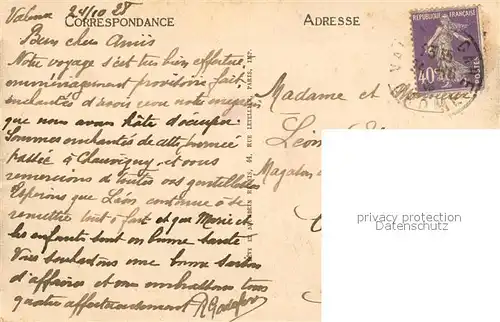 CORRESPONDANCE
ADRESSE
24/10 28
Bien chers Amis
Notre voyage s'est très bien effectué
emménagement provisoire fait,
enchantés d'avoir vu notre
que nous avons hâte d'occuper.
Sommes enchantés de cette journée
passée à Chauvigny, et vous
remercions de toutes vos gentillesses
Espérons que Léon continue à se
remettre tout à fait et que Marie et
les enfants sont en bonne santé
Vous souhaitons une bonne
d'affaires et vous embrassons tous
quatre affectueusement
Madame et Monsieur
Léon
RÉPUBLIQUE FRANÇAISE
40c
POSTES
privacy protection
Datenschutz